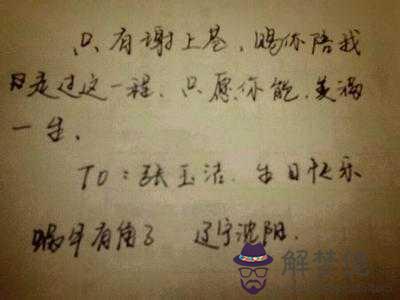 只有谢上苍，赐你陪我
走过这一程，只愿你能，美满
一生，
TO：张玉洁，生日快乐
蜗牛有角了 辽宁沈阳.
解梦佬